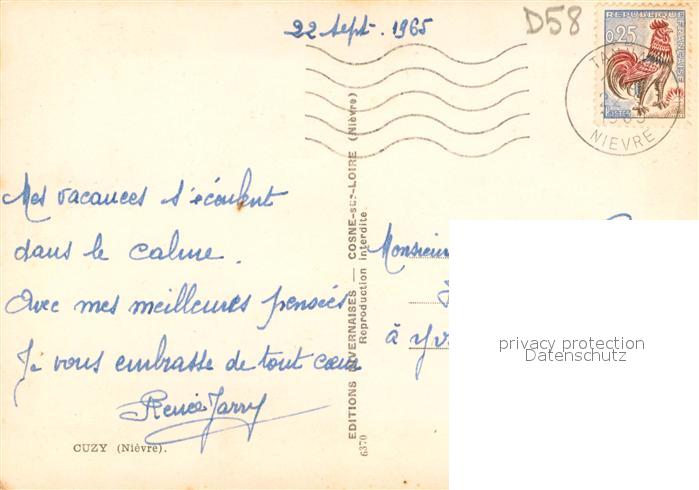 22 Sept. 1965
D58
REPUBLIQUE FRANÇAISE
0,25
POSTES
NIEVRE
Mes vacances s'écoulent
dans le calme.
Avec mes meilleures pensées
Je vous embrasse de tout cœur
Renée Jarry
CUZY (Nièvre).
EDITIONS NIVERNAISES — COSNE-sur-LOIRE (Nièvre)
Reproduction Interdite
6370
Monsieur
à Yv
privacy protection
Datenschutz